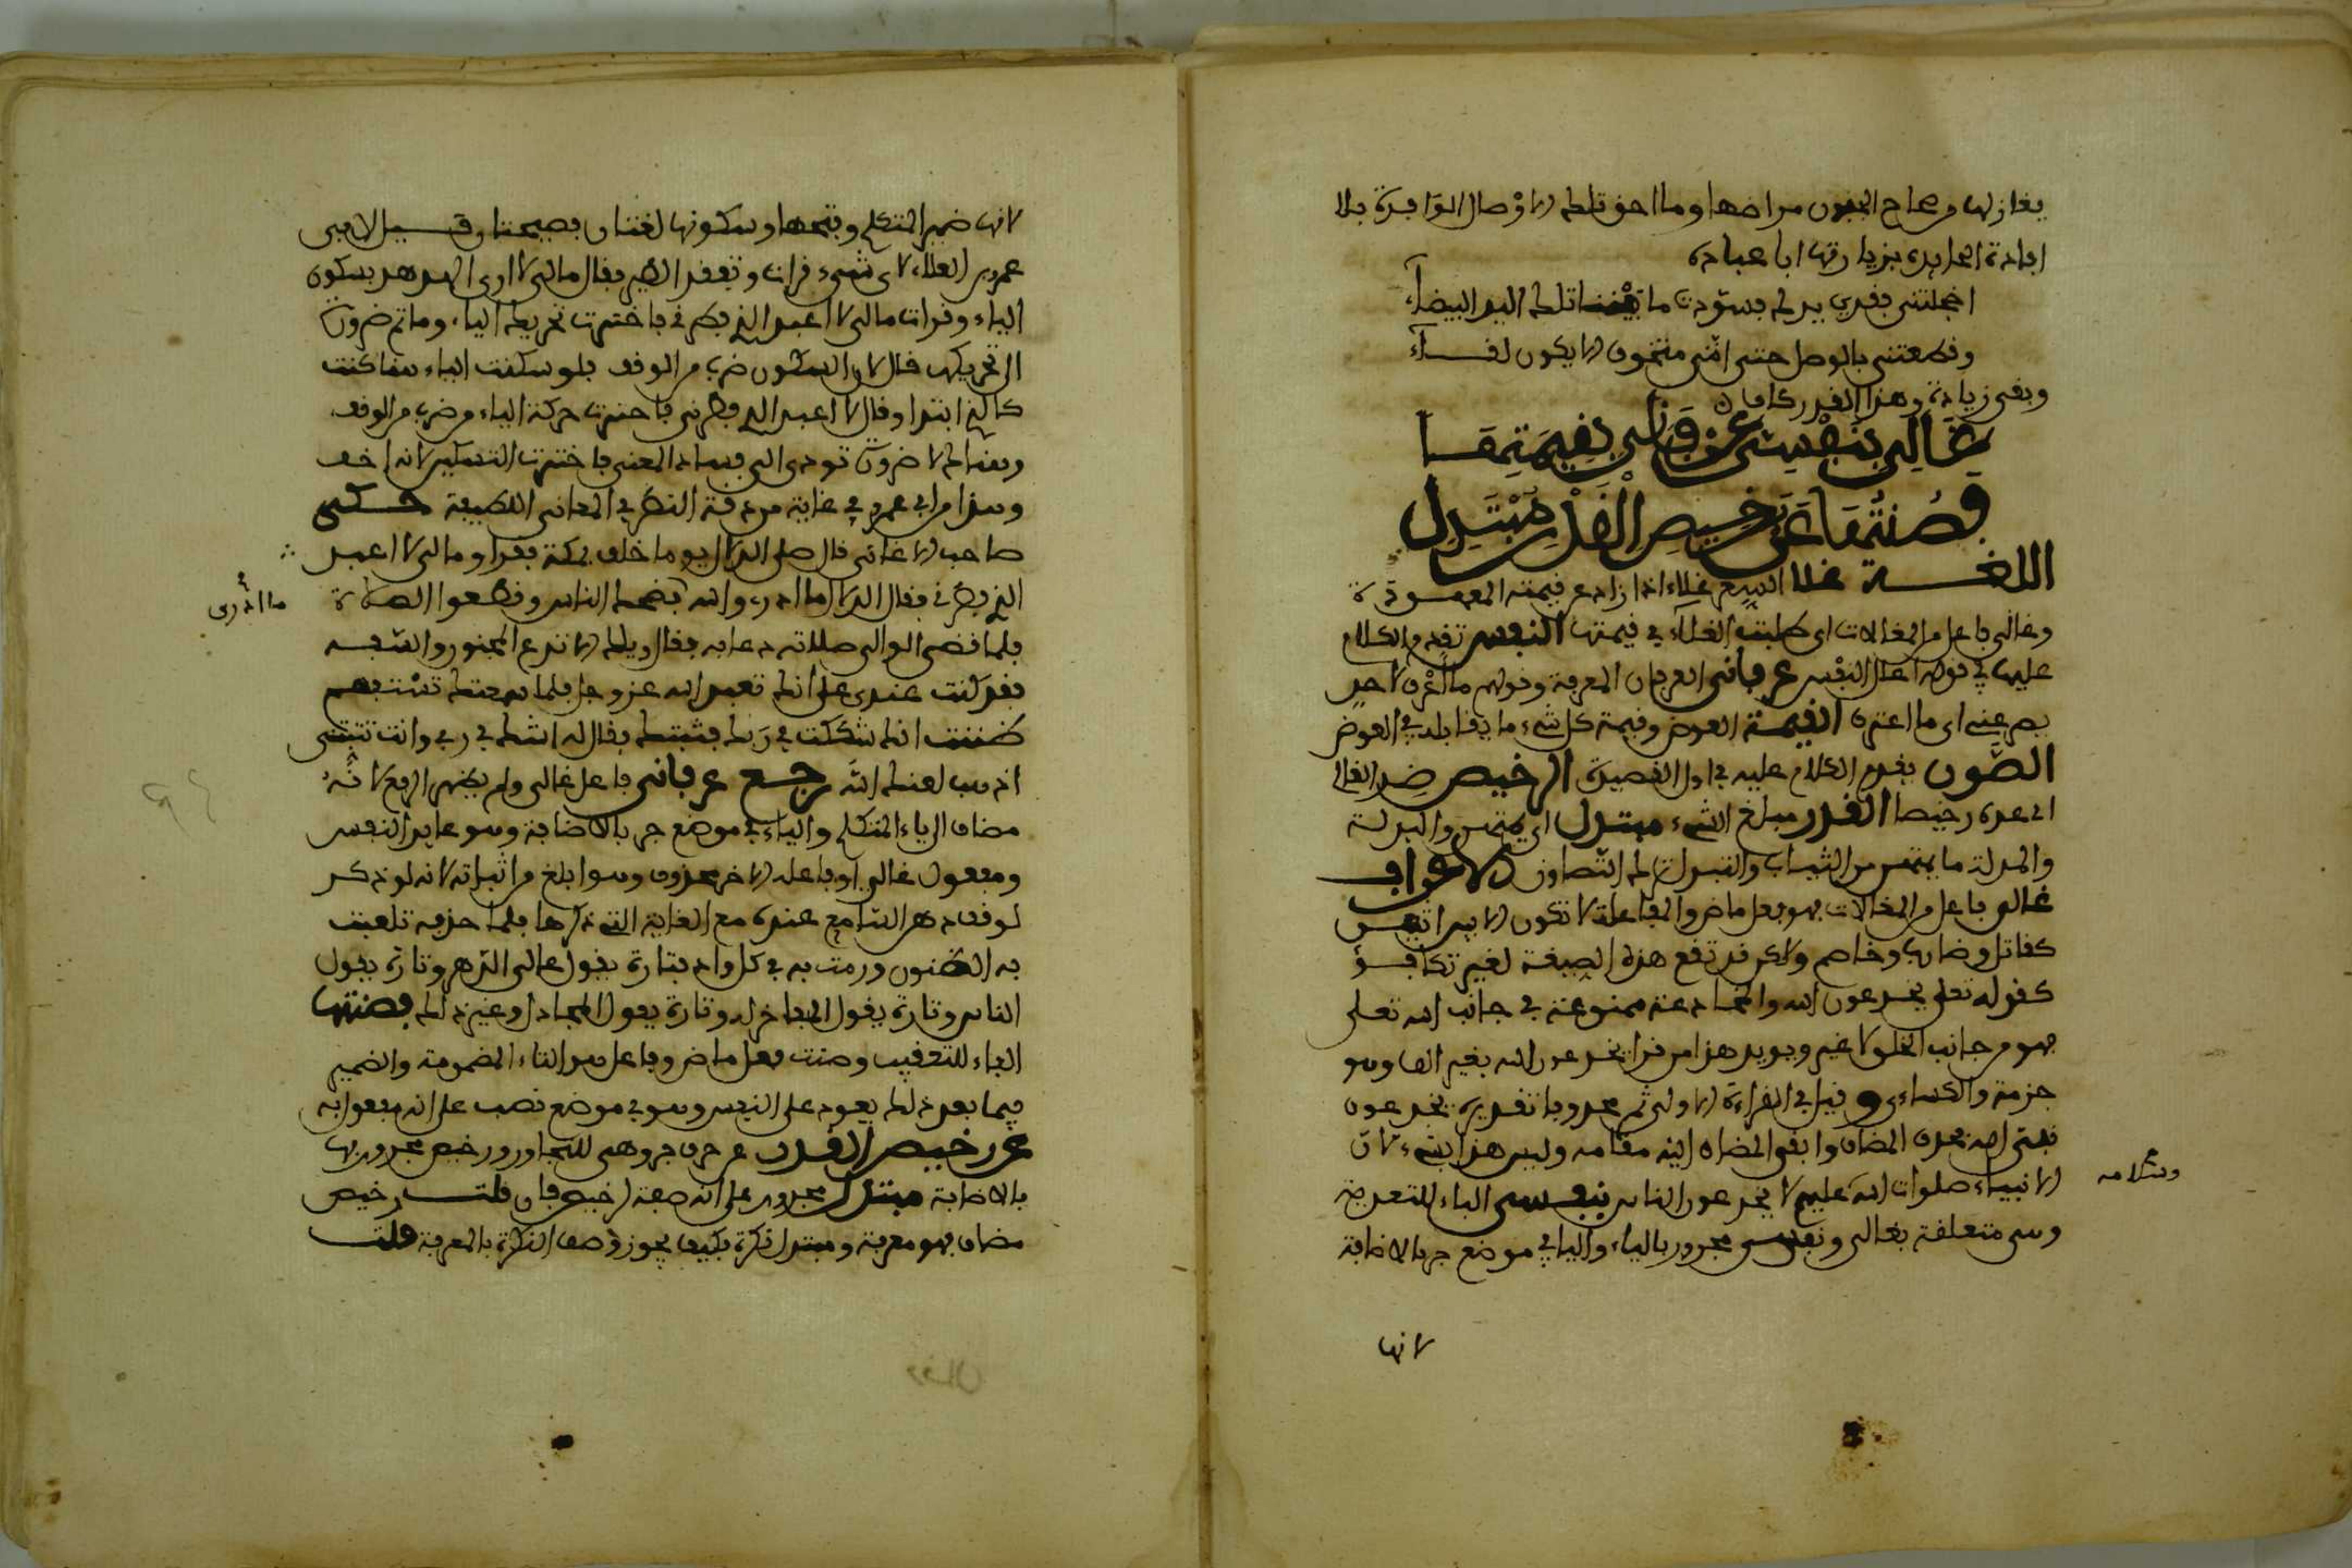 يغازلها وصحاح الجفون مراضها وما احق تلك الاوصال الوافرة بلا
افادة العايدة بزيارتها ابا عبادة
اخجلتني بندى يديك فسودت ما بيننا تلك اليد البيضاء
وقطعتني بالوصل حتى انني متخوف الا يكون لقاء
وبقى زيادة وهذا القدر كاف
غالى بنفسي عرفاني بقيمتها
فصنتها عن رخيص القدر مبتذل
اللغة غلا البيع غلاء اذا زاد عن قيمته المعهودة
وغالى فاعل من المغالات اى طلبت الغلاء في قيمتها النفس تقدم الكلام
عليها في قوله اعلل النفس عرفاني العرفان المعرفة وقولهم ما اعرف لاحد
يصرعني اى ما اعترف القيمة العوض وقيمة كل شيء ما يقابله في العوض
الصون تقدم الكلام عليه في اول القصيدة الرخيص ضد الغالى
اى عده رخيصا القدر مبلغ الشيء مبتذل اى يمتهن والبذلة
والمبذلة ما يمتهن من الثياب والتبذل ترك التصاون الاعراب
غالى فاعل من المغالات فهو فعل ماض والمفاعلة لا تكون الا بين اثنين
كقاتل وضارب وخاصم ولاكن قد تقع هذه الصيغة لغير تكافؤ
كقوله تعلى يخدعون الله والمخادعة ممنوعة في جانب الله تعلى
فهو من جانب الخلق لا غير ويويد هذا من قرا يخدعون الله بغير الف وهو
حمزة والكساءى وقيل في القراءة الاولى ثم محذوف تقديره يخدعون
نبي الله فحذف المضاف وابقى المضاف اليه مقامه وليس هذا بشيء لان
الانبياء صلوات الله عليهم لا يخدعون الناس بنفسي الباء للتعدية
وسلامه
وهى متعلقة بغالى ونفسي مجرور بالباء والياء في موضع جر بالاضافة
لانها
لانها ضمير المتكلم وفتحها وسكونها لغتان فصيحتان قيل لابى
عمرو بن العلاء لاى شيء قرات وتفقد الطير فقال مالي لا ارى الهدهد بسكون
الياء وقرات مالي لا اعبد الذي فطرني فاخترت تحريك الياء وما ثم ضرورة
الى تحريكها قال لان السكون ضرب من الوقف فلو سكنت الياء هنا كنت
كالذي ابتدا وقال لا اعبد الذي فطرني فاخترت حركة الياء من ضرب من الوقف
وهنالك لا ضرورة تودى الى فساد المعنى فاخترت التسكين لانه اخف
وهذا من ابى عمرو في غاية من دقة النظر في المعانى اللطيفة حكى
صاحب الاغانى قال صلى الدلال يوما خلف بمكة فقرا ومالي لا اعبد
الذي فطرني فقال الدلال ما ادرى والله فضحك الناس وقطعوا الصلاة
ما ادرى
فلما قضى الوالى صلاته دعا به فقال ويلك الا تدع المجنون والسفه
فقد كنت عندى على انك تعبد الله عز وجل فلما سمعتك تستفهم
ظننت انك شككت في ربك فثبتك فقال له اشك في ربي وانت تثبتني
اذهب لعنك الله رجع عرفاني فاعل غالى ولم يظهر الرفع لانه
مضاف الى ياء المتكلم والياء في موضع جر بالاضافة وهو عايد النفس
ومفعول غالى او فاعله الاخر محذوف وهو ابلغ من اثباته لانه لو ذكر
لوقف ذهن السامع عنده مع الغاية التي ذكرها فلما حذفه تلعبت
به الظنون ورمت به في كل واد فتارة يقول غالى الدهر وتارة يقول
الناس وتارة يقول المفاخر له وتارة يقول المجادل وغير ذلك فصنتها
الفاء للتعقيب وصنت فعل ماض وفاعل هو التاء المضمومة والضمير
فيما بعد ذلك يعود على النفس وهو في موضع نصب على انه مفعول به
عن رخيص القدر عن حرف جر وهى للتجاوز ورخيص مجرور بها
بالاضافة مبتذل مجرور على انه صفة لرخيص فان قلت رخيص
مضاف فهو معرفة ومبتذل نكرة فكيف يجوز وصف النكرة بالمعرفة قلت